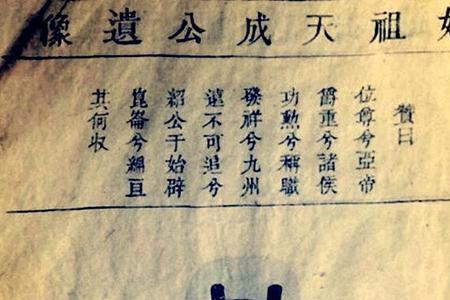 祖天成公遺像
贊曰
位尊兮亞帝
爵重兮諸侯
功勲兮稱職
發祥兮九州
遠不可追兮
紹公于始辟
崑崙兮綿亘
其何收